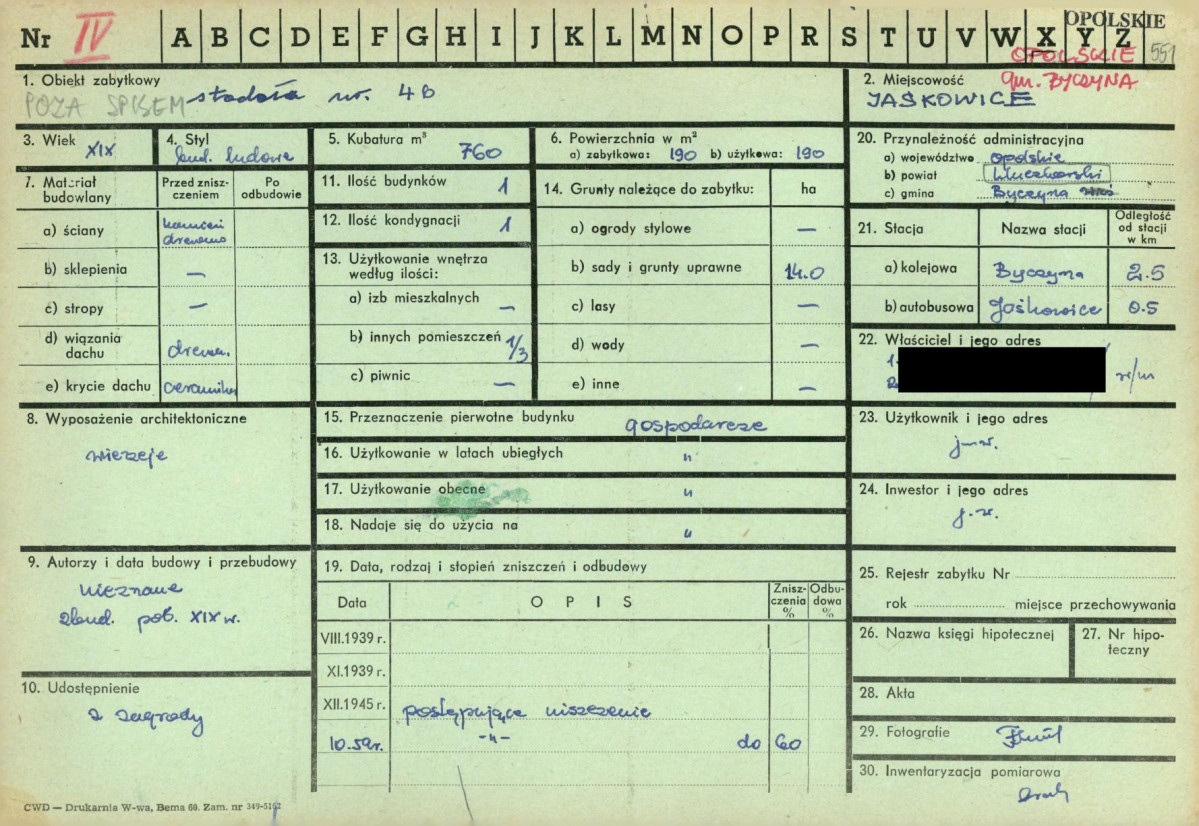 Nr IV A B C D E F G H I J K L M N O P R S T U V W X Y Z
OPOLSKIE
OPOLSKIE 551
gm. BYCZYNA
1. Obiekt zabytkowy
POZA SPISEM stodoła nr. 4b
2. Miejscowość
JAŚKOWICE
3. Wiek
XIX
4. Styl
bud. ludowe
5. Kubatura m³
760
6. Powierzchnia w m²
a) zabytkowa: 190 b) użytkowa: 190
20. Przynależność administracyjna
a) województwo opolskie
b) powiat kluczborski
c) gmina Byczyna
7. Materiał budowlany
Przed zniszczeniem
Po odbudowie
a) ściany kamień
drewno
b) sklepienia —
c) stropy —
d) wiązania dachu drewn.
e) krycie dachu ceramika
11. Ilość budynków 1
12. Ilość kondygnacji 1
13. Użytkowanie wnętrza
według ilości:
a) izb mieszkalnych —
b) innych pomieszczeń 1/3
c) piwnic —
14. Grunty należące do zabytku: ha
a) ogrody stylowe —
b) sady i grunty uprawne 14.0
c) lasy —
d) wody —
e) inne —
21. Stacja
Nazwa stacji
Odległość od stacji w km
a) kolejowa Byczyna 2.5
b) autobusowa Jaśkowice 0.5
22. Właściciel i jego adres
1.
w/m
8. Wyposażenie architektoniczne
wierzeje
15. Przeznaczenie pierwotne budynku gospodarcze
16. Użytkowanie w latach ubiegłych "
17. Użytkowanie obecne "
18. Nadaje się do użycia na "
23. Użytkownik i jego adres
j.w.
24. Inwestor i jego adres
j.w.
9. Autorzy i data budowy i przebudowy
nieznane
zbud. poł. XIX w.
10. Udostępnienie
z zagrody
19. Data, rodzaj i stopień zniszczeń i odbudowy
Data
OPIS
Zniszczenia %
Odbudowa %
VIII.1939 r.
XI.1939 r.
XII.1945 r. postępujące niszczenie
10.59r. -"- do 60
25. Rejestr zabytku Nr
rok miejsce przechowywania
26. Nazwa księgi hipotecznej
27. Nr hipoteczny
28. Akta
29. Fotografie
30. Inwentaryzacja pomiarowa
brak
CWD — Drukarnia W-wa, Bema 60. Zam. nr 349-5102